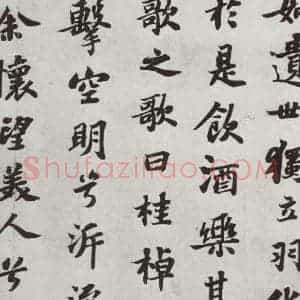 如遺世獨立羽化
於是飲酒樂甚
歌之歌曰桂棹
擊空明兮泝流
余懷望美人兮
Shufaziliao.COM